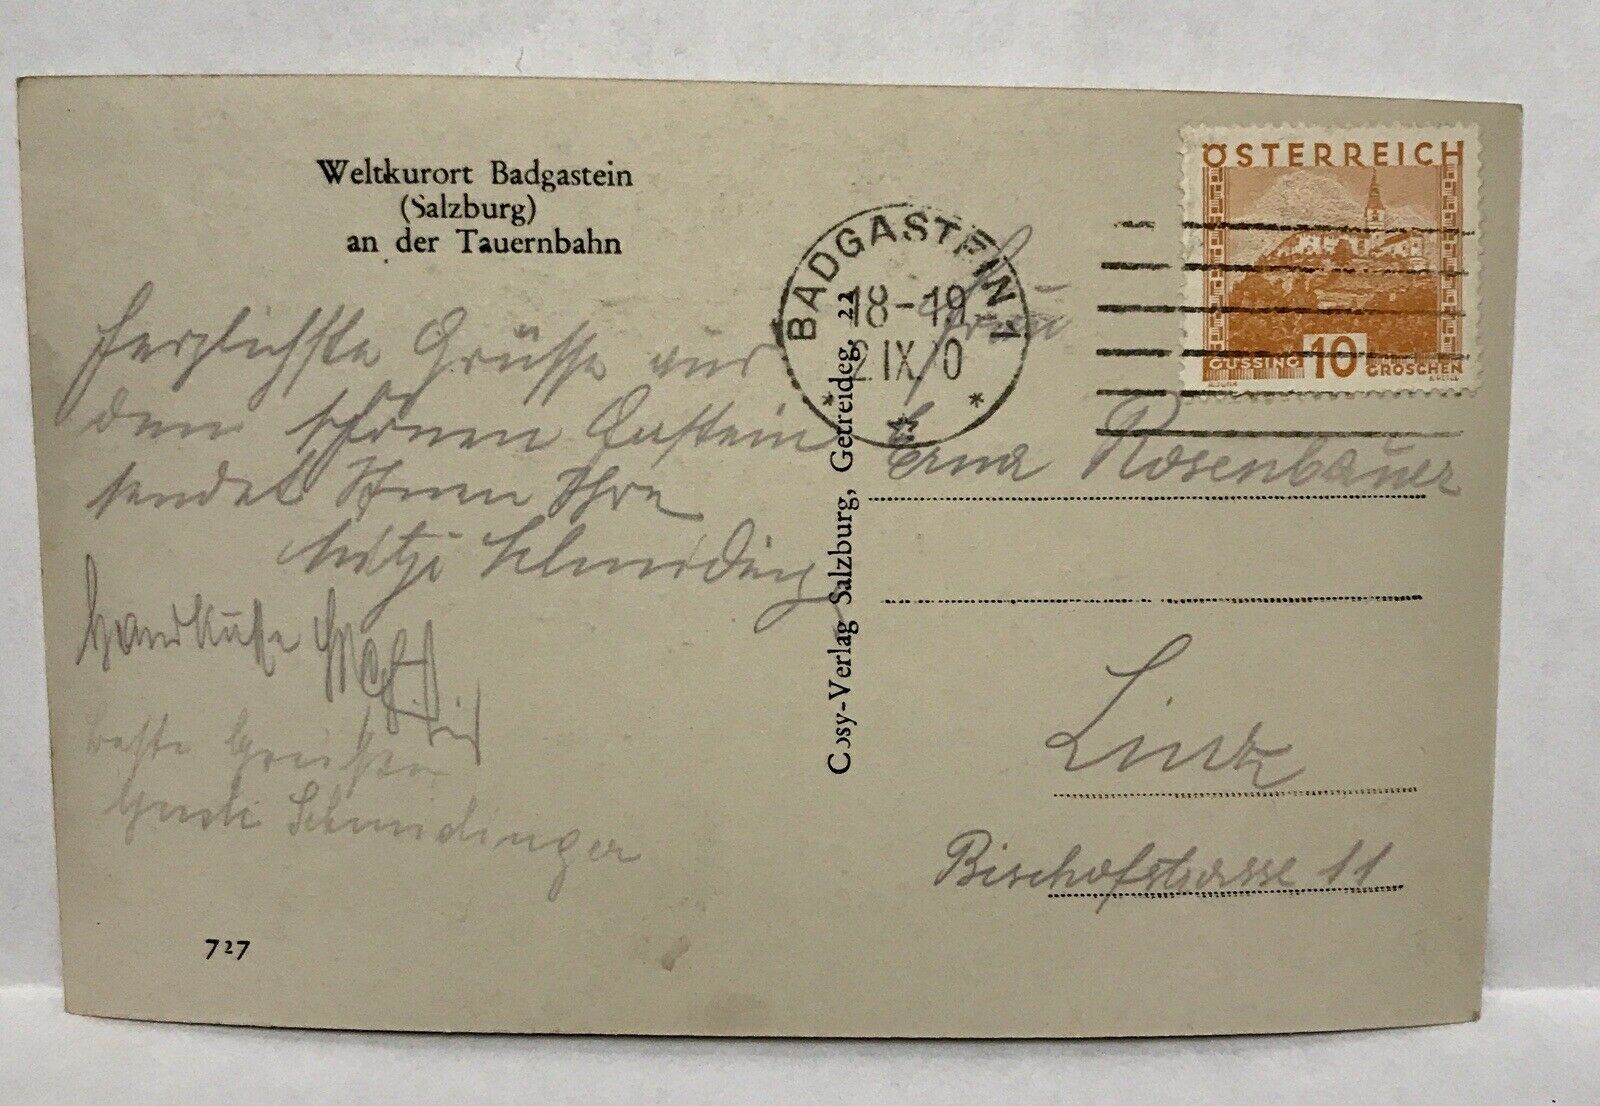 Weltkurort Badgastein
(Salzburg)
an der Tauernbahn
Herzlichste Grüsse aus
dem schönen Gastein
sendet Ihnen Ihre
Mitzi Schmiding
Handküsse
beste Grüße
Schmidinger
727
Cosy-Verlag Salzburg, Getreideg. 22
BADGASTEIN 1
18-19
2 IX 0
ÖSTERREICH
GÜSSING 10 GROSCHEN
Frau
Erna Rosenbauer
Linz
Bischofstrasse 11